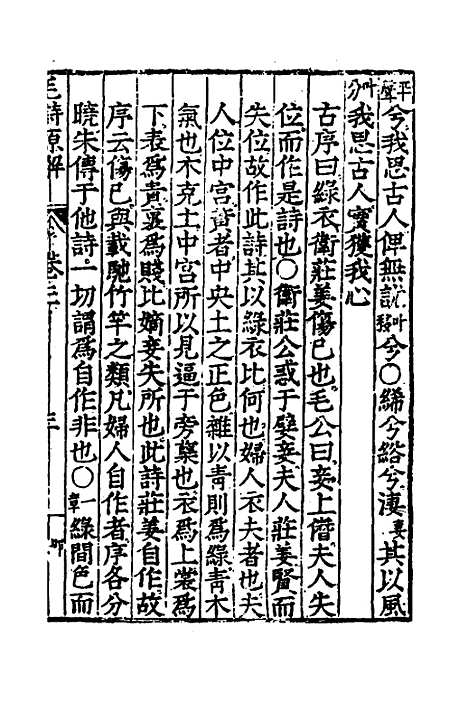 平聲兮我思古人俾無訧叶移兮〇絺兮綌兮淒妻其以風
叶分我思古人實獲我心
古序曰綠衣衛莊姜傷己也毛公曰妾上僭夫人失
位而作是詩也〇衛莊公惑于嬖妾夫人莊姜賢而
失位故作此詩其以綠衣比何也婦人衣夫者也夫
人位中宮黃者中央土之正色雜以青則為綠青木
氣也木克土中宮所以見逼于旁孽也衣為上裳為
下表為貴裏為賤比嫡妾失所也此詩莊姜自作故
序云傷己與載馳竹竿之類凡婦人自作者序各分
曉朱傳于他詩一切謂為自作非也〇一章綠間色而
毛詩原解 卷三 三